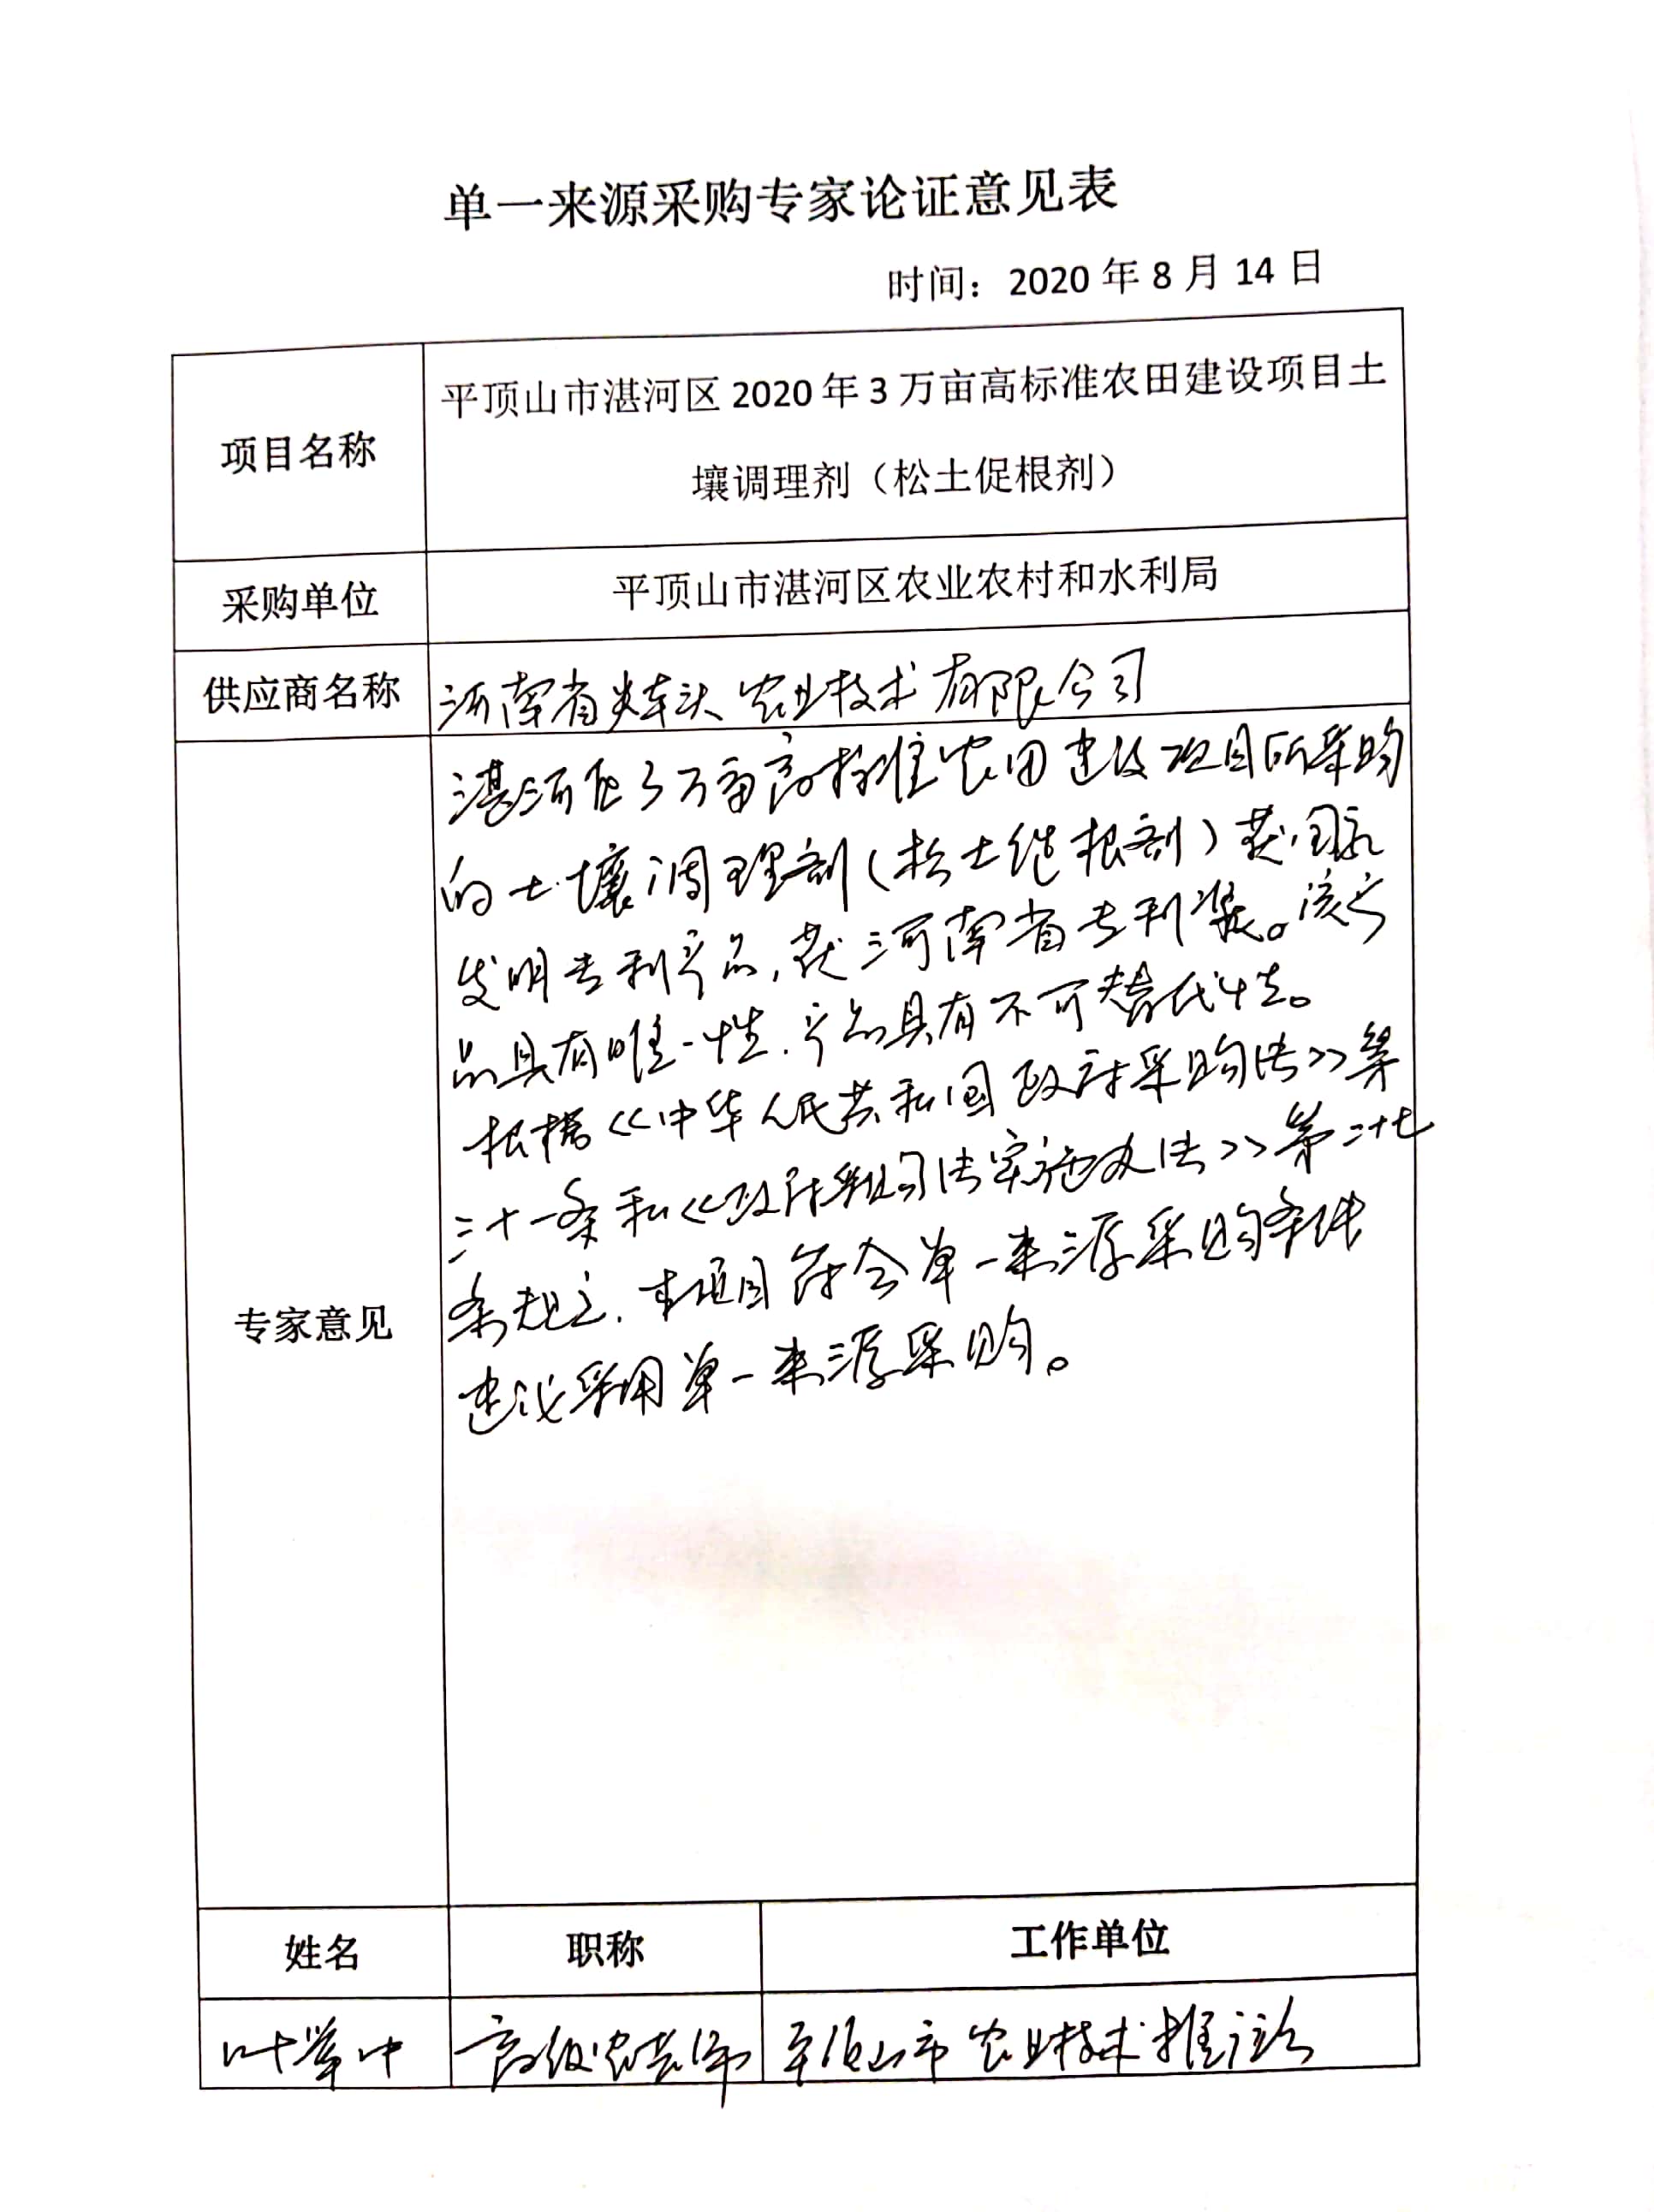 单一来源采购专家论证意见表
时间：2020 年 8 月 14 日
项目名称
平顶山市湛河区 2020 年 3 万亩高标准农田建设项目土
壤调理剂（松土促根剂）
采购单位
平顶山市湛河区农业农村和水利局
供应商名称
河南省 农业技术有限公司
专家意见
湛河区3万亩高标准农田建设项目所采购
的土壤调理剂(松土促根剂)获国家
发明专利产品,获河南省专利奖。该产
品具有唯一性.产品具有不可替代性。
根据《中华人民共和国政府采购法》第
三十一条和《政府采购法实施办法》第二十七
条规定.本项目符合单一来源采购条件
建议采用单一来源采购。
姓名
职称
工作单位
叶 中
高级农艺师
平顶山市农业技术推